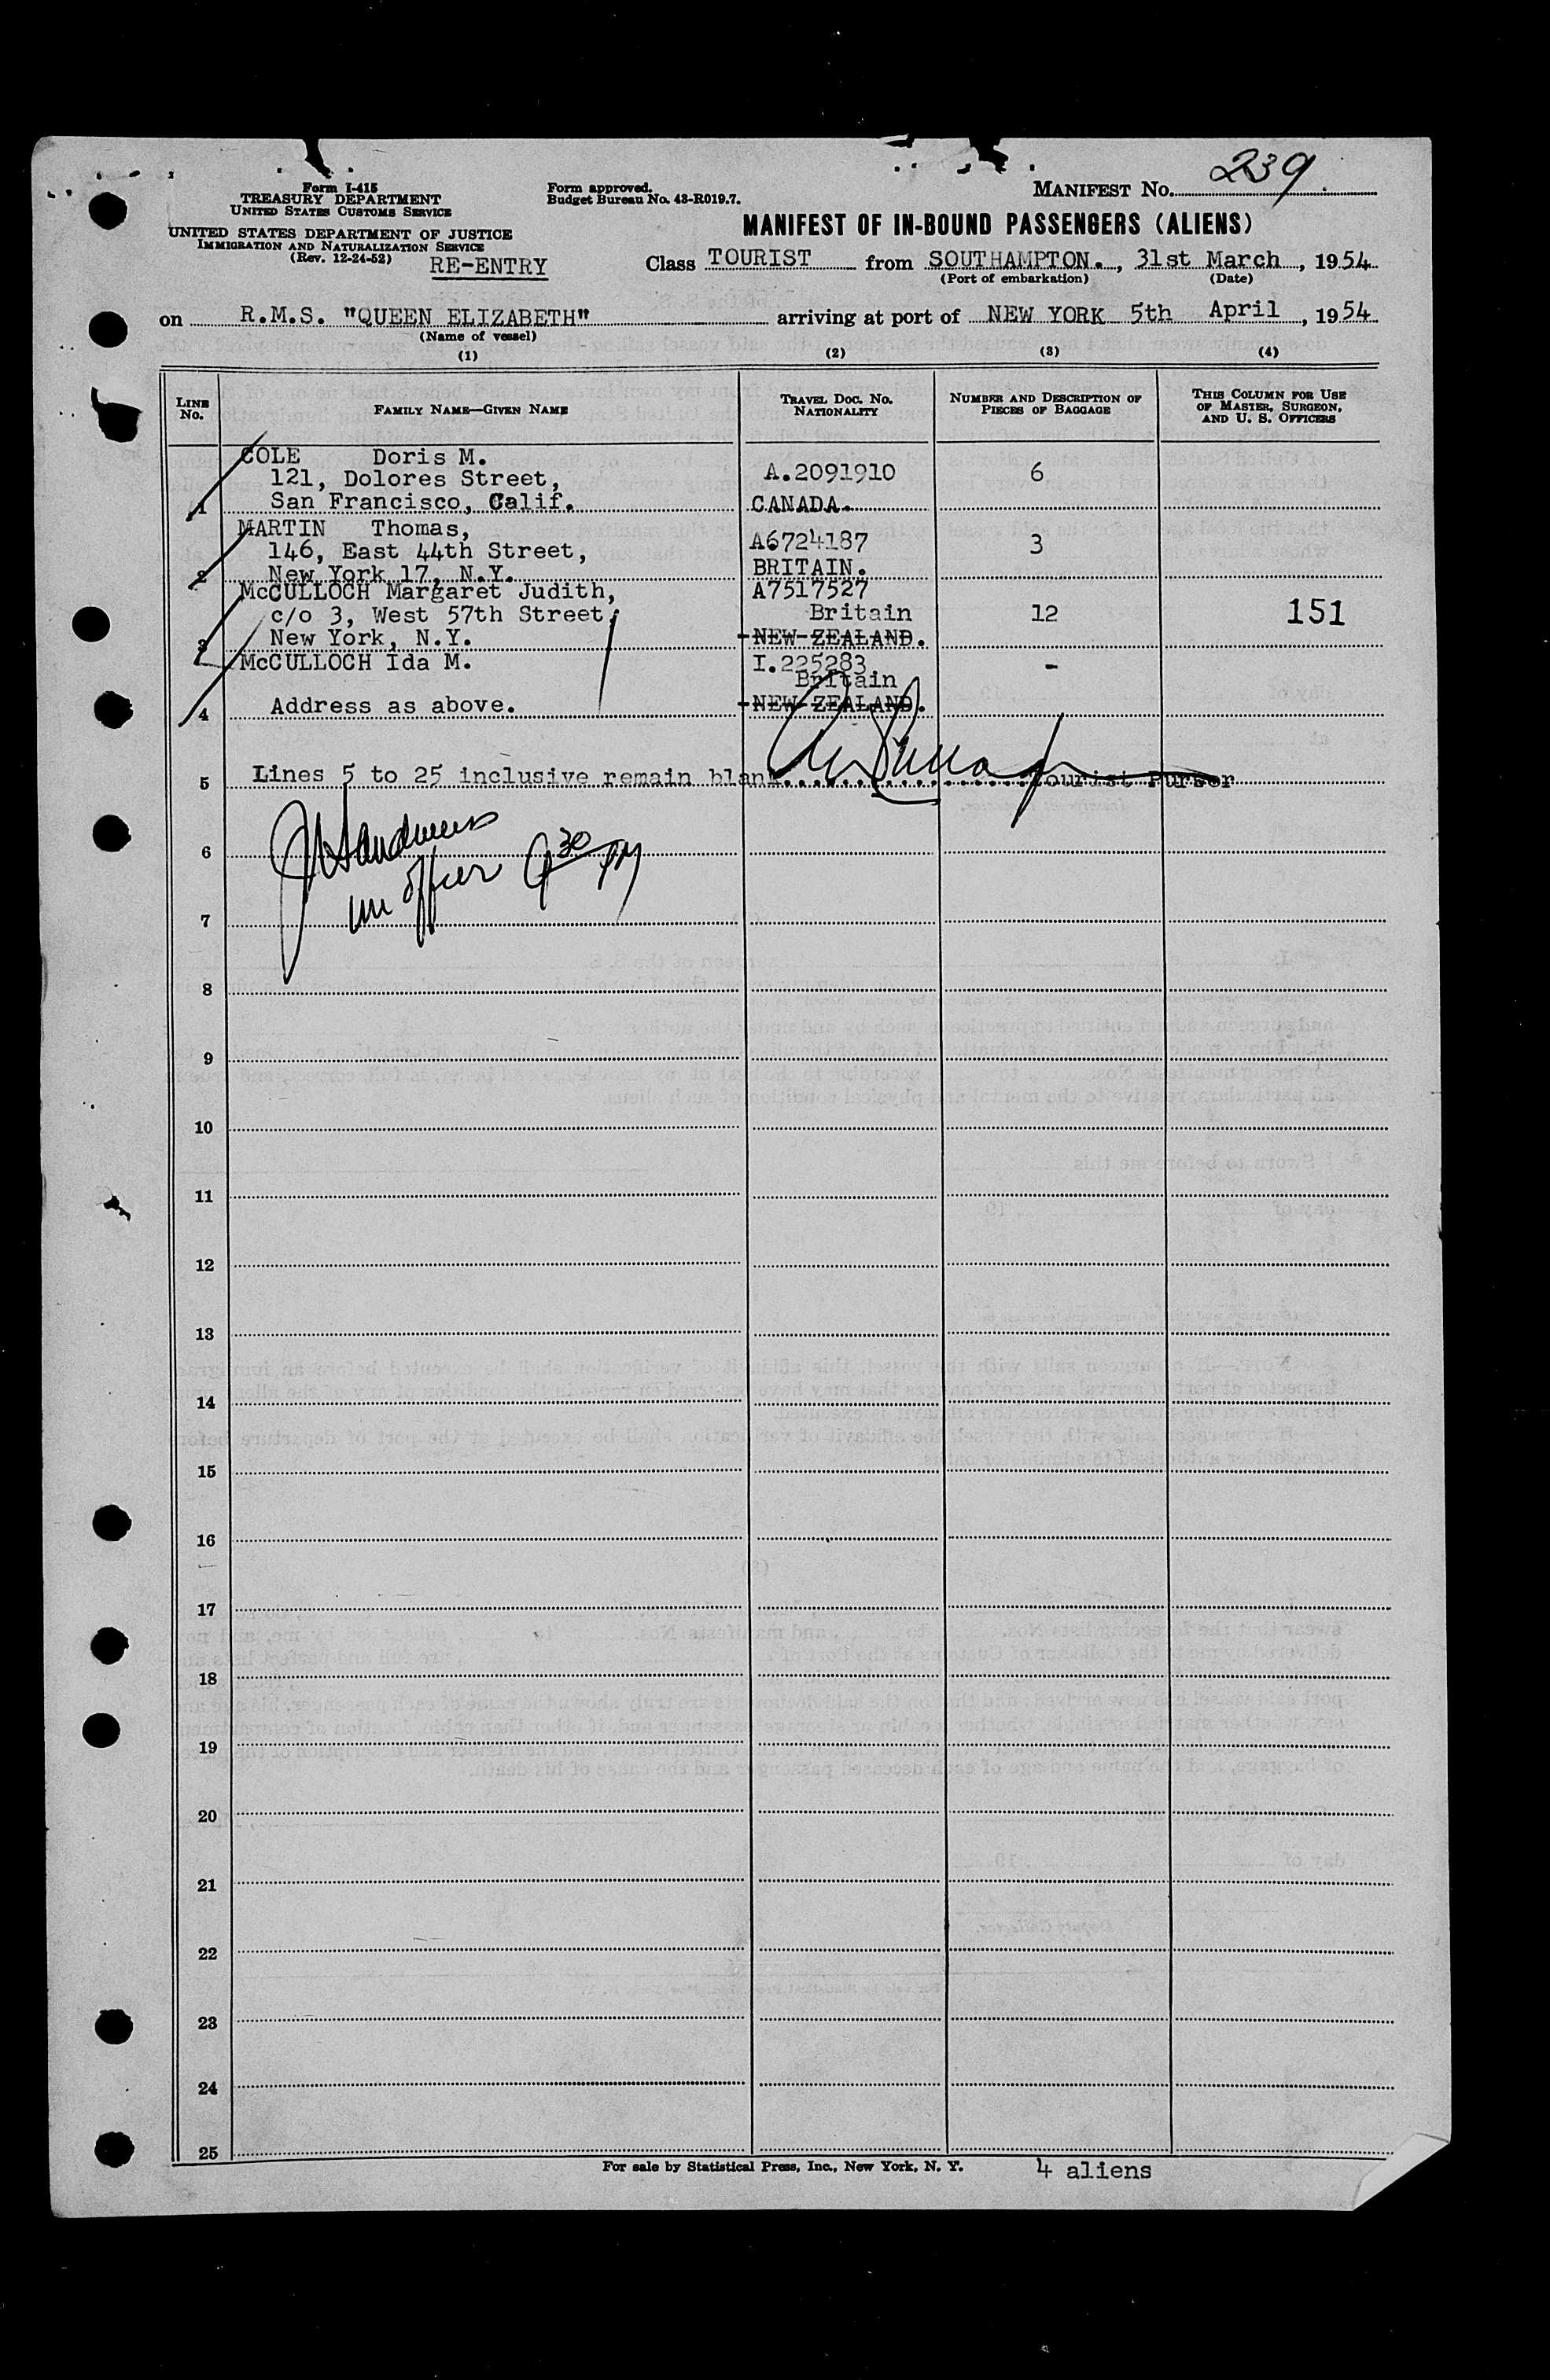 239
Form I-415
TREASURY DEPARTMENT
UNITED STATES CUSTOMS SERVICE
UNITED STATES DEPARTMENT OF JUSTICE
IMMIGRATION AND NATURALIZATION SERVICE
(Rev. 12-24-52)
RE-ENTRY
Form approved.
Budget Bureau No. 43-R019.7.
MANIFEST NO.
MANIFEST OF IN-BOUND PASSENGERS (ALIENS)
Class TOURIST from SOUTHAMPTON., 31st March, 1954
(Port of embarkation) (Date)
on R.M.S. "QUEEN ELIZABETH" arriving at port of NEW YORK 5th April, 1954
(Name of vessel)
(1) (2) (3) (4)
LINE No.
FAMILY NAME—GIVEN NAME
TRAVEL DOC. NO.
NATIONALITY
NUMBER AND DESCRIPTION OF
PIECES OF BAGGAGE
THIS COLUMN FOR USE
OF MASTER, SURGEON,
AND U. S. OFFICERS
COLE Doris M.
121, Dolores Street, A.2091910 6
1 San Francisco, Calif. CANADA.
MARTIN Thomas,
146, East 44th Street, A6724187 3
2 New York 17, N.Y. BRITAIN.
McCULLOCH Margaret Judith, A7517527
c/o 3, West 57th Street, Britain 12 151
3 New York, N.Y. NEW ZEALAND.
McCULLOCH Ida M. I.225283 -
Britain
4 Address as above. NEW ZEALAND.
5 Lines 5 to 25 inclusive remain blank. Tourist Purser
6
officer 9 30 PM
7
8
9
10
11
12
13
14
15
16
17
18
19
20
21
22
23
24
25
For sale by Statistical Press, Inc., New York, N. Y.
4 aliens